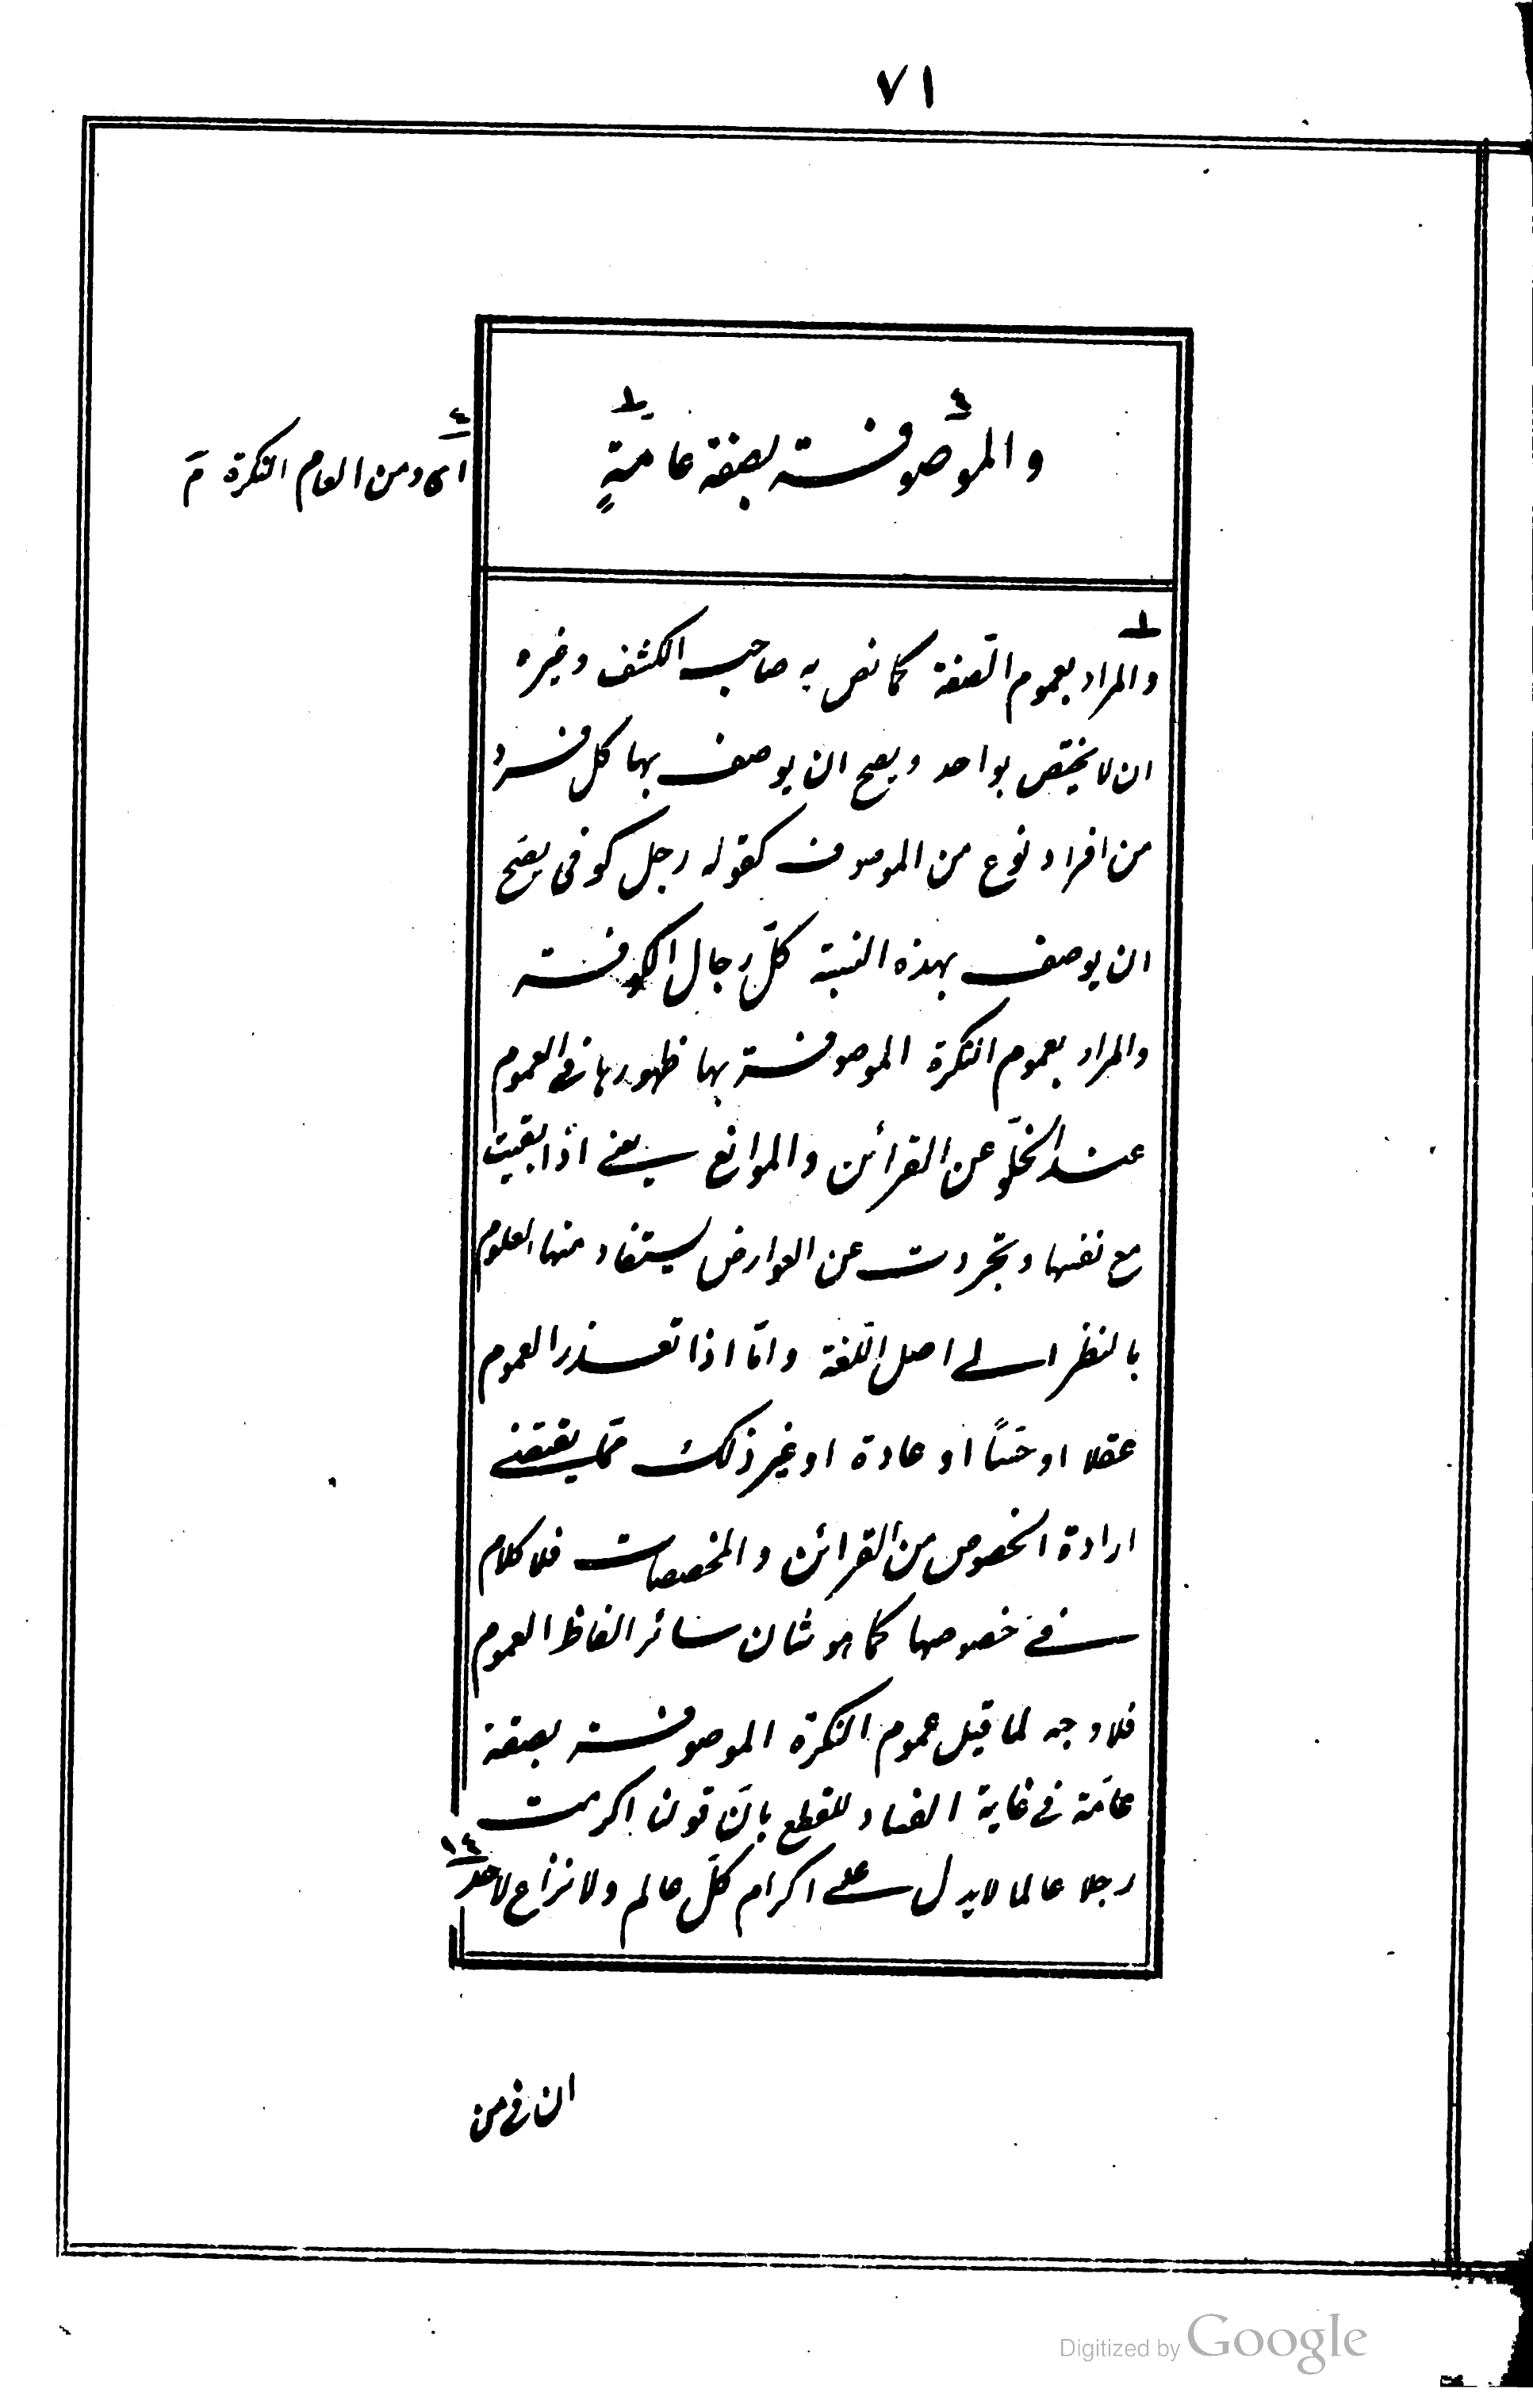 ٧١
والموصوفة بصفة عامةٍ
اى ومن العام النكرة م
والمراد بعموم الصفة كما نص به صاحب الكشف وغيره
ان لا يختص بواحد ويصح ان يوصف بها كل فرد
من افراد نوع من الموصوف كقوله رجل كوفى يصح
ان يوصف بهذه النسبة كلّ رجال الكوفة
والمراد بعموم النكرة الموصوفة بها ظهورها فى العموم
عند الخلوّ عن القرائن والموانع يعنى اذا بقيت
مع نفسها وتجردت عن العوارض يستفاد منها العلوم
بالنظر الى اصل اللّغة وامّا اذا تعذر العموم
عقلا او حسّاً او عادة او غير ذلك ممّا يقتضى
ارادة الخصوص من القرائن والمخصصات فلا كلام
فى خصوصها كما هو شان سائر الفاظ العموم
فلا وجه لما قيل عموم النكرة الموصوفة بصفة
عامّة فى غاية الفساد للقطع بانّ قولنا اكرمت
رجلا عالما لا يدل على اكرام كلّ عالم ولا نزاع لاحد
ان فى من
Digitized by Google